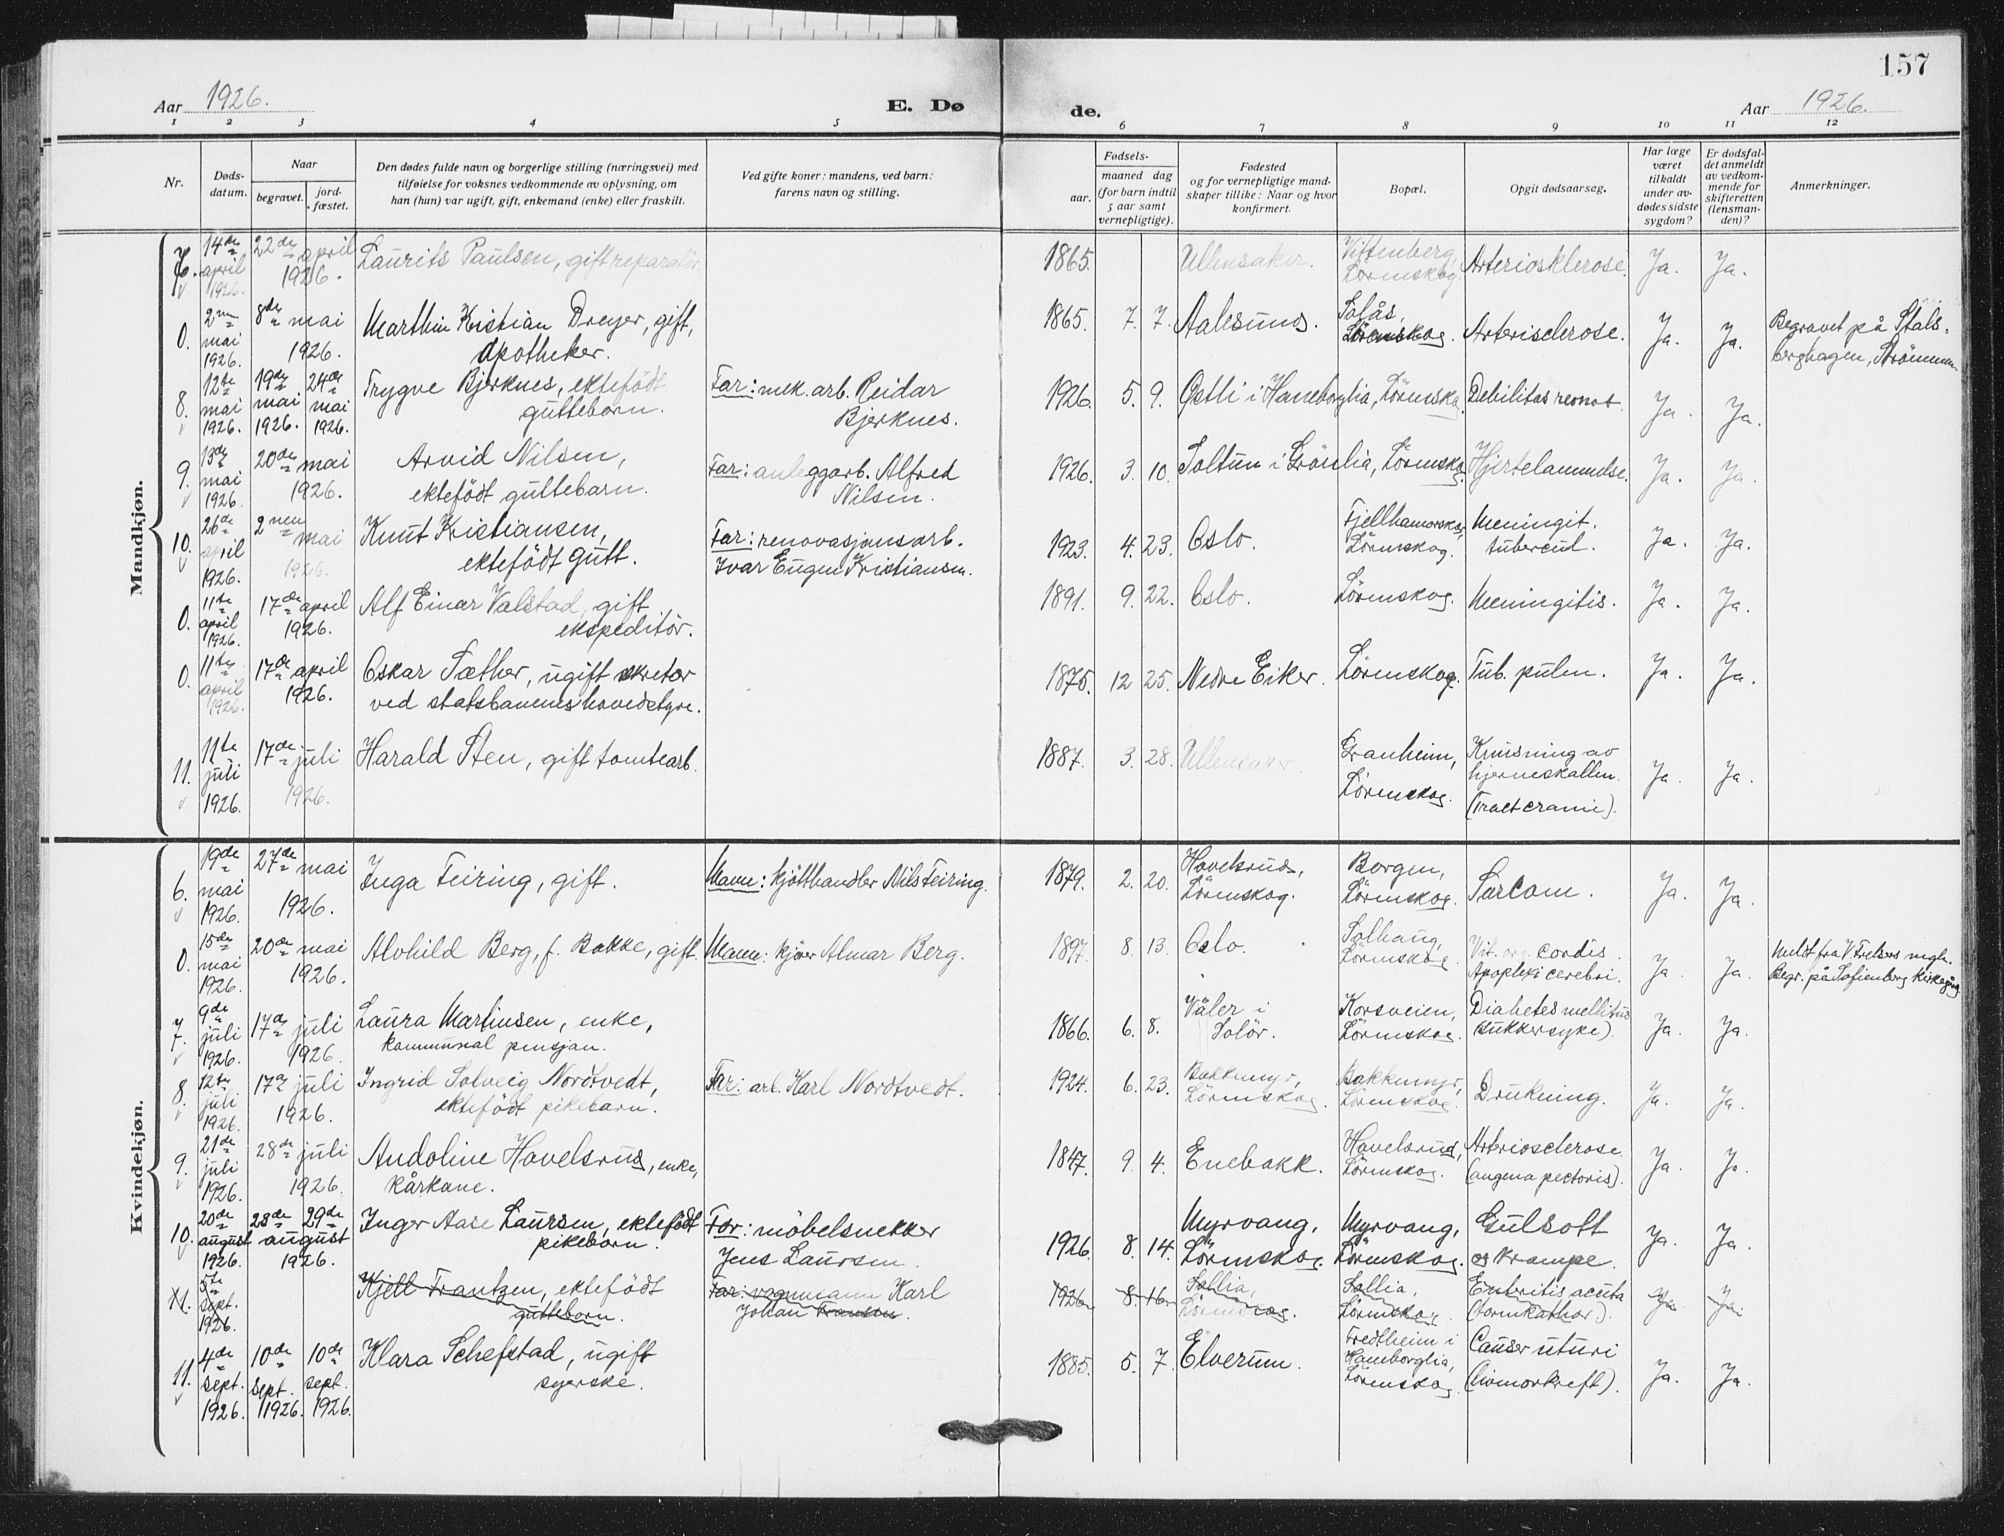 157
Aar 1926. E. Dø de. Aar 1926.
1 2 3 4 5 6 7 8 9 10 11 12
Nr.
Døds-
datum.
Naar
begravet.
jord-
fæstet.
Den dødes fulde navn og borgerlige stilling (næringsvei) med
tilføielse for voksnes vedkommende av oplysning, om
han (hun) var ugift, gift, enkemand (enke) eller fraskilt.
Ved gifte koner: mandens, ved barn:
farens navn og stilling.
Fødsels-
aar.
maaned dag
(for barn indtil
5 aar samt
vernepligtige).
Fødested
og for vernepligtige mand-
skaper tillike: Naar og hvor
konfirmert.
Bopæl.
Opgit dødsaarsag.
Har læge
været
tilkaldt
under av-
dødes sidste
sygdom?
Er dødsfal-
det anmeldt
av vedkom-
mende for
skifteretten
(lensman-
den)?
Anmerkninger.
Mandkjøn.
14de april 1926. 22de april 1926. Laurits Paulsen, gift reparatör. 1865. Ullensaker. Vittenberg, Lörenskog. Arteriosklerose. Ja. Ja.
0. 2nn mai 1926. 8de mai 1926. Marthin Kristian Dreyer, gift,
apotheker. 1865. 7. 7. Aalesund. Solås, Lörenskog. Arterisclerose. Ja. Ja. Begravet på Stals-
berghagen, Strömmen.
8. 12te mai 1926. 19de mai 1926. 24de mai 1926. Trygve Bjerknes, ektefödt
guttebarn. Far: mek. arb. Reidar
Bjerknes. 1926. 5. 9. Østli i Haneborglia, Lörenskog. Debilitas Ja. Ja.
9. 13de mai 1926. 20de mai 1926. Arvid Nilsen,
ektefödt guttebarn. Far: anleggarb. Alfred
Nilsen. 1926. 3. 10. Soltun i Grönlia, Lörenskog. Hjertelammelse. Ja. Ja.
10. 26de april 1926. 2nen mai 1926. Knut Kristiansen,
ektefödt gutt. Far: renovasjonsarb.
Ivar Eugen Kristiansen. 1923. 4. 23. Oslo. Fjellhamarskog, Lörenskog. Meningit.
tubercul. Ja. Ja.
0. 11te april 1926. 17de april 1926. Alf Einar Valstad, gift
ekspeditör. 1891. 9. 22. Oslo. Lörenskog. Meningitis. Ja. Ja.
0. 11te april 1926. 17de april 1926. Oskar Sæther, ugift skretær
ved statsbanenes hovedstyre. 1875. 12 25. Nedre Eiker. Lörenskog. Tub. pulm. Ja. Ja.
11. 11te juli 1926. 17de juli 1926. Harald Sten, gift tomtearb. 1887. 3. 28. Ullensaker. Granheim,
Lörenskog. Knusning av
hjerneskallen.
(Fract cranie). Ja. Ja.
Kvindekjøn.
6. 19de mai 1926. 27de mai 1926. Inga Feiring, gift. Mann: kjötthandler Nils Feiring. 1879. 2. 20. Havelsrud,
Lörenskog. Borgen,
Lörenskog. Sarcom. Ja. Ja.
0. 15de mai 1926. 20de mai 1926. Alvhild Berg, f. Bakke, gift. Mann: kjörer Almar Berg. 1897. 8. 13. Oslo. Solhaug,
Lörenskog. Vit. org. cordis.
Apoplexi cerebri. Ja. Ja. Meldt fra V. Frelsers mgh.
Begr. på Sofienberg kirkegård
7. 9de juli 1926. 17de juli 1926. Laura Martinsen, enke,
kommunal pensjon. 1866. 6. 8. Våler i
Solör. Korsveien,
Lörenskog. Diabetes mellitus
sukkersyke). Ja. Ja.
8. 12te juli 1926. 17de juli 1926. Ingrid Solveig Nordtvedt,
ektefödt pikebarn. Far: arb. Karl Nordtvedt. 1924. 6. 23. Bakkemyr,
Lörenskog. Bakkemyr,
Lörenskog. Drukning. Ja. Ja.
9. 21de juli 1926. 28de juli 1926. Andoline Havelsrud, enke,
kårkone. 1847. 9. 4. Enebakk. Havelsrud,
Lörenskog. Arteriosclerose
(angina pectoris). Ja. Ja.
10. 20de august 1926. 28de 29de august 1926. Inger Aase Laursen, ektefödt
pikebarn. Far: möbelsnekker
Jens Laursen. 1926. 8. 14. Myrvang,
Lörenskog. Myrvang,
Lörenskog. Gulsott
og krampe. Ja. Ja.
11. 5te sept. 1926. Kjell Frantzen, ektefödt
guttebarn. Far: vognmann Karl
Johan Frantzen. 1926 8. 16. Sollia,
Lörenskog. Sollia,
Lörenskog. Enteritis acuta
(tarmkatharr). Ja Ja.
11. 4de sept. 1926. 10de sept. 1926. 10de sept. 1926. Klara Schefstad, ugift
syerske. 1885. 5. 7. Elverum. Fredtheim i
Haneborglia,
Lörenskog. Cancer uturi
(livmorkreft). Ja. Ja.